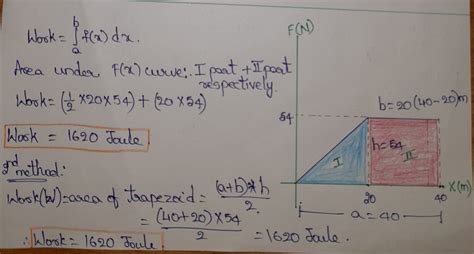 Work = ∫ₐᵇ f(x) dx.
Area under f(x) curve:. I part + II part
respectively.
Work = (1/2 × 20 × 54) + (20 × 54)
Work = 1620 Joule.
2nd method:
Work(W) = area of trapezoid = (a+b)*h / 2.
= (40+20) × 54 / 2 = 1620 Joule.
∴ Work = 1620 Joule.
F(N)
54
b=20(40-20)m
h=54
I
II
X(m)
20
40
a=40